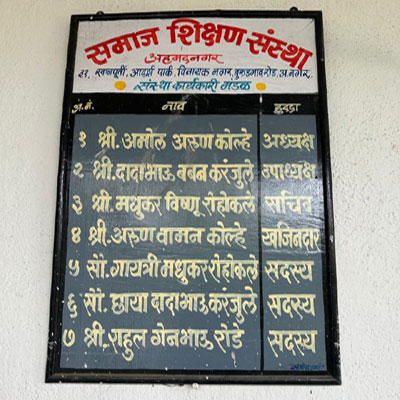 समाज शिक्षण संस्था
अहमदनगर
संस्था कार्यकारी मंडळ
अ.नं. नाव हुद्दा
१ श्री. अमोल अरुण कोल्हे अध्यक्ष
२ श्री. दादाभाऊ बबन करंजुले उपाध्यक्ष
३ श्री. मधुकर विष्णू रोहोकले सचिव
४ श्री. अरुण वामन कोल्हे खजिनदार
५ सौ. गायत्री मधुकर रोहोकले सदस्य
६ सौ. छाया दादाभाऊ करंजुले सदस्य
७ श्री. राहुल गेनभाऊ रोडे सदस्य